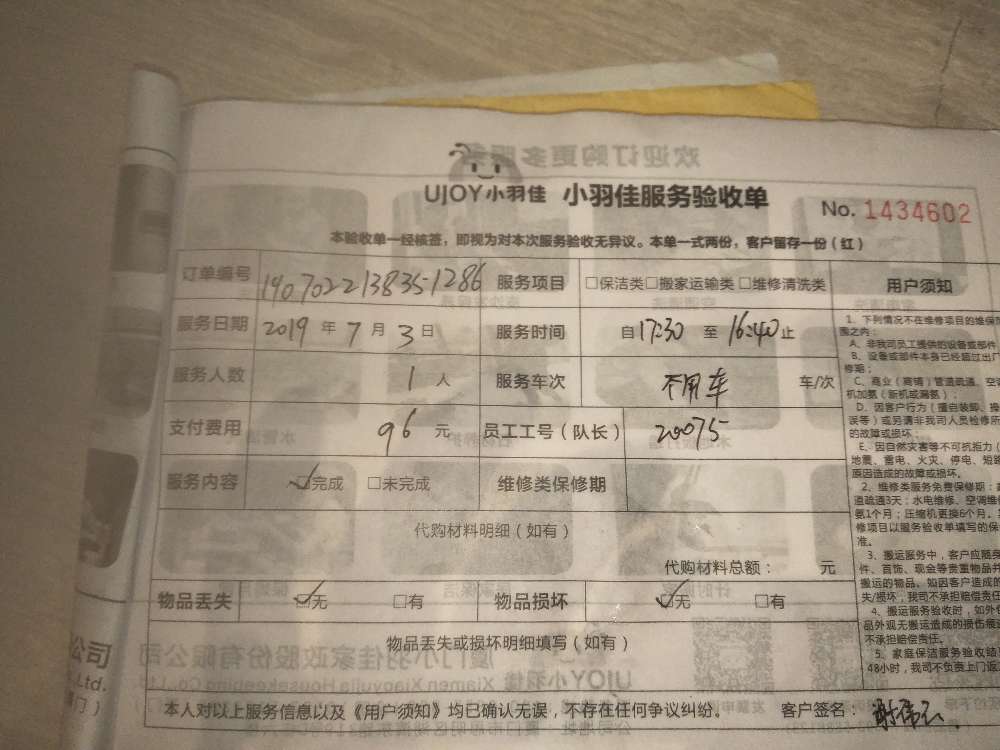 欢迎订购更多服务
UJOY小羽佳 小羽佳服务验收单 No. 1434602
本验收单一经核签，即视为对本次服务验收无异议。本单一式两份，客户留存一份（红）
订单编号 190702213835-1286 服务项目 □保洁类□搬家运输类 □维修清洗类 用户须知
服务日期 2019 年 7 月 3 日 服务时间 自17:30 至 16:40止
服务人数 1 人 服务车次 不用车 车/次
支付费用 96 元 员工工号（队长） 20075
服务内容 ☑完成 □未完成 维修类保修期
代购材料明细（如有）
代购材料总额： 元
物品丢失 ☑无 □有 物品损坏 ☑无 □有
物品丢失或损坏明细填写（如有）
本人对以上服务信息以及《用户须知》均已确认无误，不存在任何争议纠纷。 客户签名：
1、下列情况不在维修项目的维保范
围之内：
A、非我司员工提供的设备或部件
B、设备或部件本身已经超过出厂
修期；
C、商业（商铺）管道疏通、空调
机加氨（新机或漏氨）；
D、因客户行为（擅自装卸、操
误等）或另请非我司人员检修所
的故障或损坏；
E、因自然灾害等不可抗拒力（
地震、雷电、火灾、停电、短路
原因造成的故障或损坏。
2、维修类服务免费保修期：
道疏通3天；水电维修、空调维
氨1个月；压缩机更换6个月。
修项目以服务验收单填写的保
准。
3、搬运服务中，客户应随身
件、首饰、现金等贵重物品并
搬运的物品。如因客户造成的
失/损坏，我司不承担赔偿责任
4、搬运服务验收时，如外
品外观无搬运造成的损伤痕迹
不承担赔偿责任。
5、家庭保洁服务验收结
48小时，我司不负责上门返工
公司
Ltd.
门）
厦门小羽佳家政股份有限公司
Xiamen Xiaoyujia Housekeeping Co., Ltd.
UJOY小羽佳